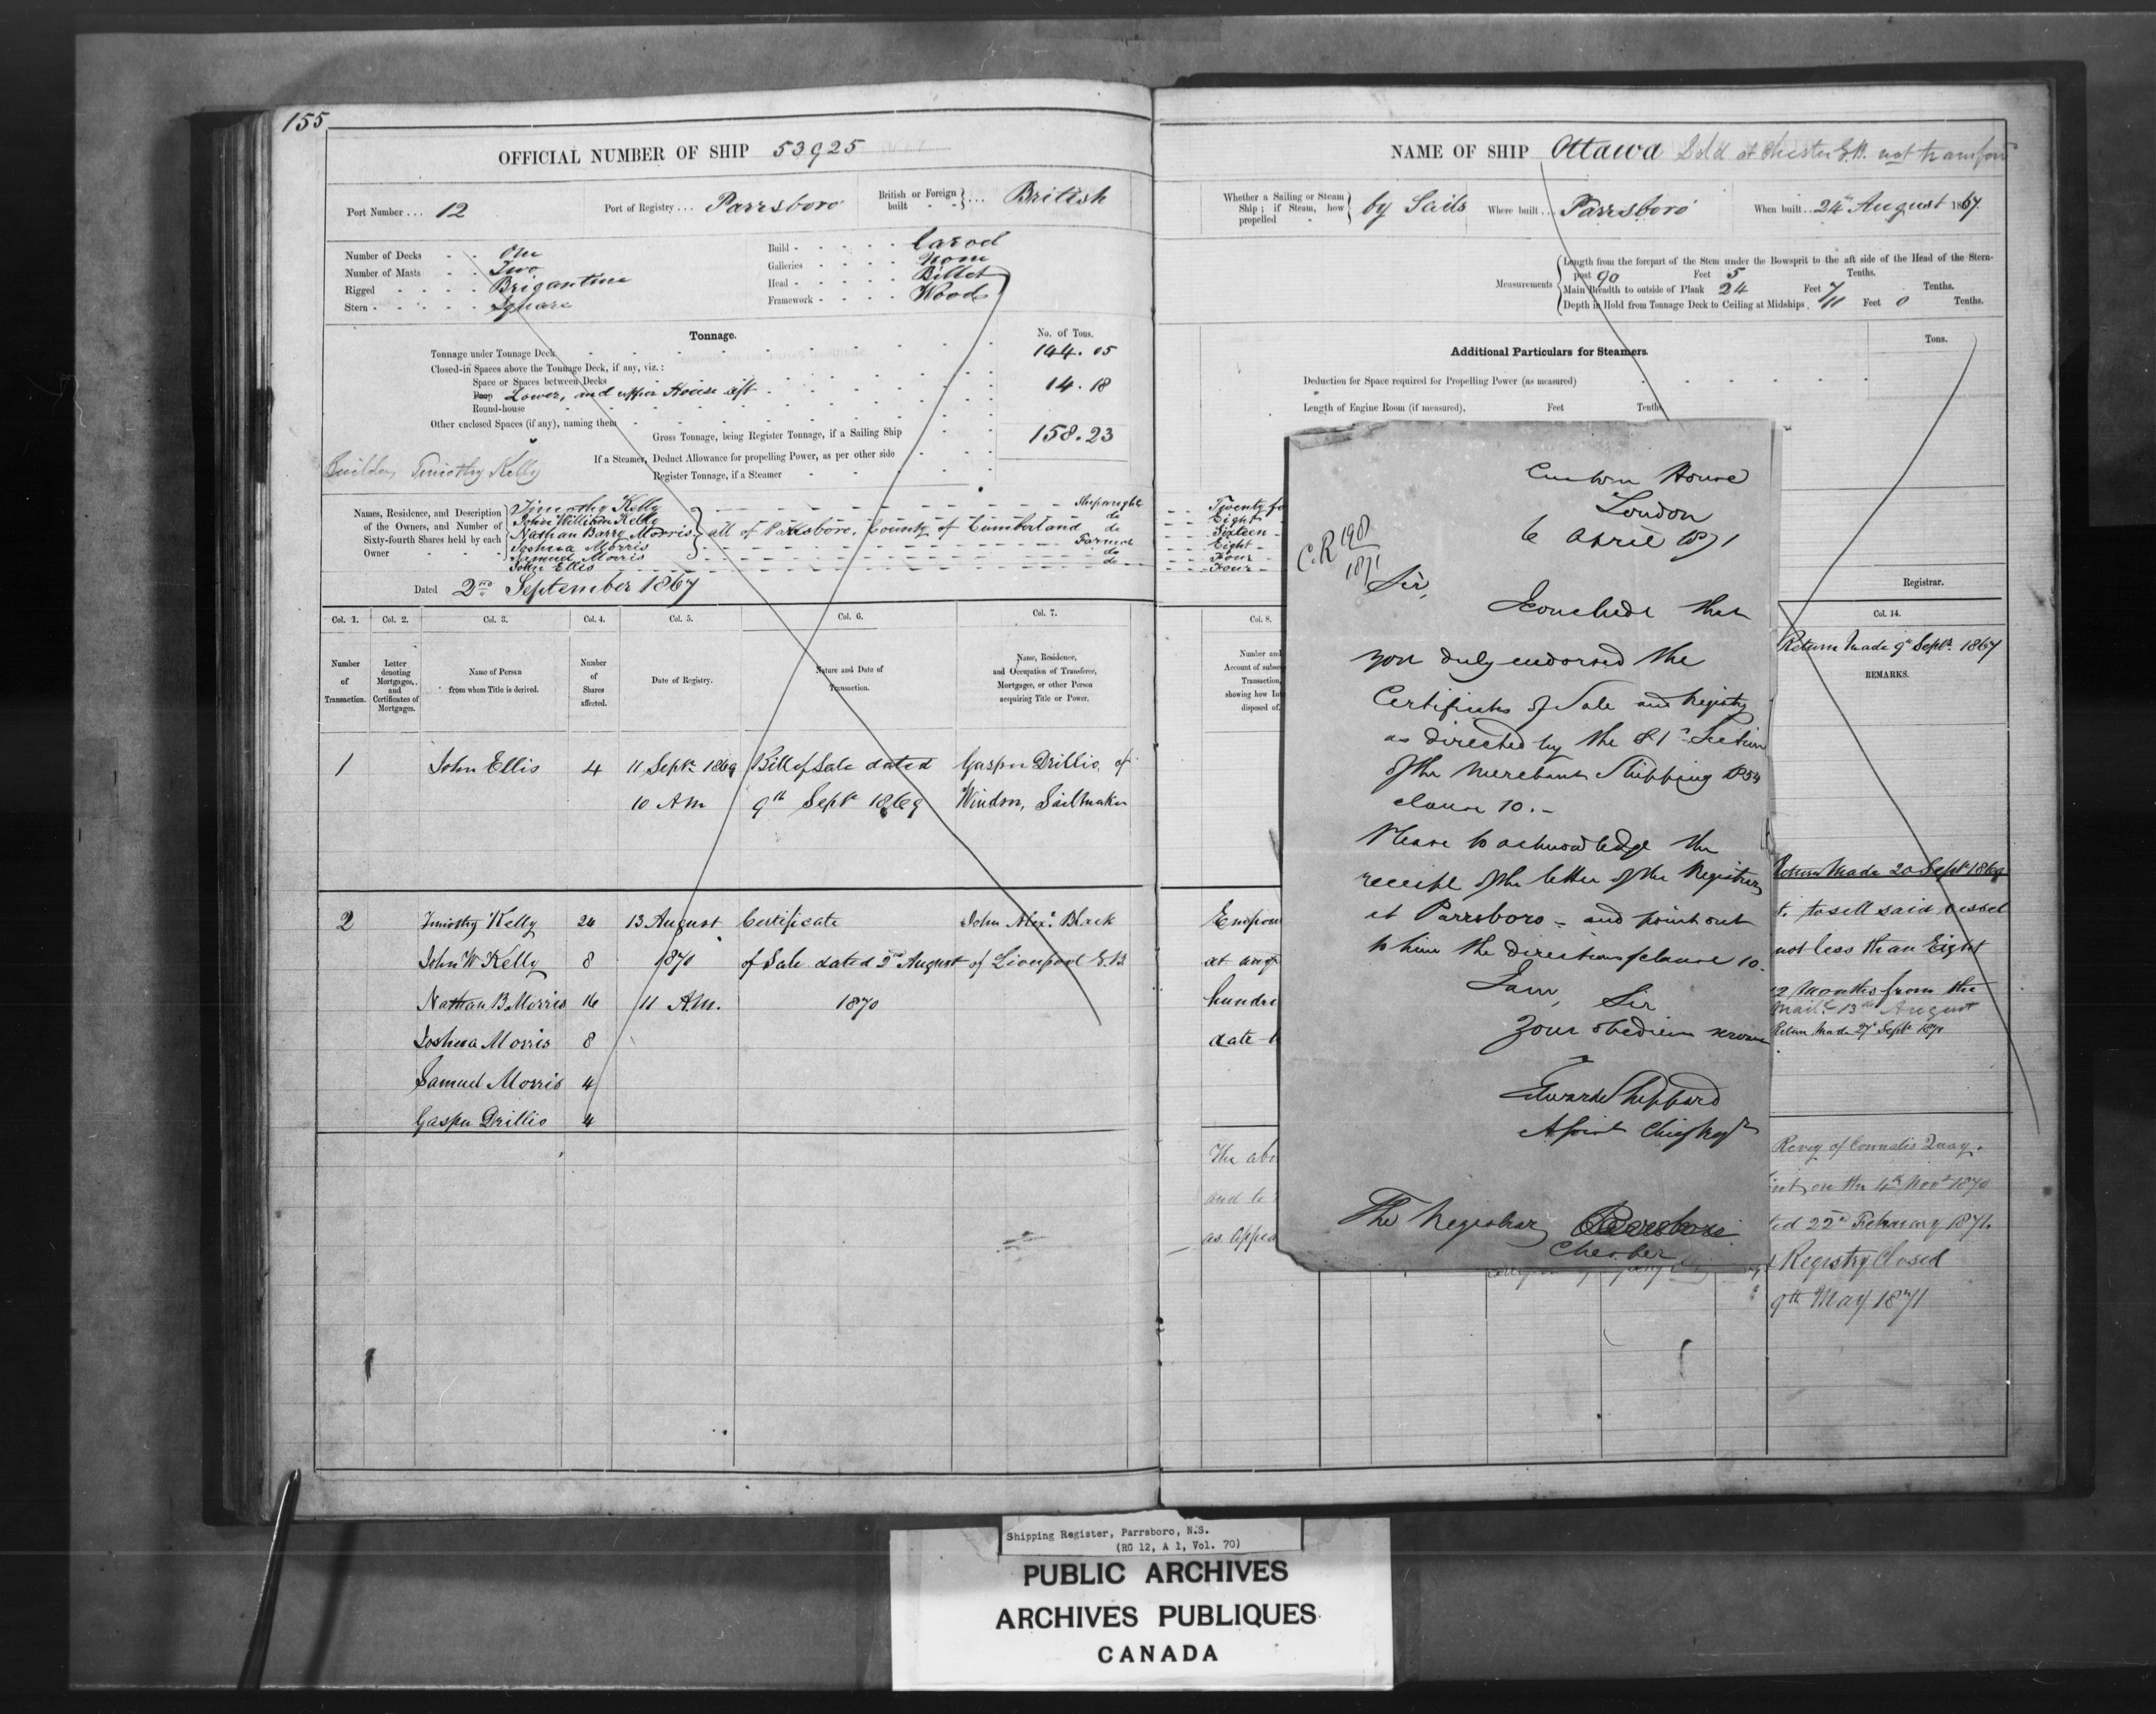 155
OFFICIAL NUMBER OF SHIP 53925
Port Number ... 12
Port of Registry ... Parrsboro
British or Foreign built ... British
Number of Decks - - One
Number of Masts - - Two
Rigged - - - - Brigantine
Stern - - - - - Square
Build - - - - - Carvel
Galleries - - - - None
Head - - - - - Billet
Framework - - - - Wood
Tonnage.
No. of Tons.
Tonnage under Tonnage Deck 144.05
Closed-in Spaces above the Tonnage Deck, if any, viz.:
Space or Spaces between Decks
Poop Lower, and upper House aft 14.18
Round-house
Other enclosed Spaces (if any), naming them
Gross Tonnage, being Register Tonnage, if a Sailing Ship 158.23
If a Steamer, Deduct Allowance for propelling Power, as per other side
Register Tonnage, if a Steamer
Builder, Timothy Kelly
Names, Residence, and Description of the Owners, and Number of Sixty-fourth Shares held by each Owner
Timothy Kelly Shipwright
John William Kelly do
Nathan Barry Morris all of Parrsboro, County of Cumberland do
Joshua Morris Farmer
Samuel Morris do
John Ellis do
Dated 2nd September 1867
Col. 1. Col. 2. Col. 3. Col. 4. Col. 5. Col. 6. Col. 7.
Number of Transaction.
Letter denoting Mortgages, and Certificates of Mortgages.
Name of Person from whom Title is derived.
Number of Shares affected.
Date of Registry.
Nature and Date of Transaction.
Name, Residence, and Occupation of Transferee, Mortgagee, or other Person acquiring Title or Power.
1 John Ellis 4 11 Septr 1869 Bill of Sale dated Gasper Drillio, of
10 AM 9th Septr 1869 Windsor, Sailmaker
2 Timothy Kelly 24 13 August Certificate John Alexr Black
John W Kelly 8 1870 of Sale dated 2nd August of Liverpool G.B
Nathan B Morris 16 11 A.M. 1870
Joshua Morris 8
Samuel Morris 4
Gasper Drillio 4
NAME OF SHIP Ottawa Sold at Chester G.B. not transferd
Whether a Sailing or Steam Ship; if Steam, how propelled by Sails
Where built ... Parrsboro
When built ... 24th August 1867.
Measurements
Length from the forepart of the Stem under the Bowsprit to the aft side of the Head of the Stern-
post 90 Feet 5 Tenths.
Main Breadth to outside of Plank 24 Feet 7 Tenths.
Depth in Hold from Tonnage Deck to Ceiling at Midships . 11 Feet 0 Tenths.
Additional Particulars for Steamers.
Tons.
Deduction for Space required for Propelling Power (as measured)
Length of Engine Room (if measured), Feet Tenths
Twenty fo
Eight
Sixteen
Eight
Four
Four
Registrar.
Col. 8.
Number and
Account of subse
Transaction,
showing how In
disposed of.
Col. 14.
Return Made 9th Septr. 1867
REMARKS.
Return Made 20 Septr 1869
Empow
t. to sell said vessel
at any
not less than Eight
hundre
12 Months from the
Mailed 13th August
date
Return Made 27 Septr 1870
The abo
Revey of Connahs Quay.
and
on the 4th Novr 1870
as appea
ted 22nd February 1871.
Registry Closed
9th May 1871
Custom House
London
6 April 1871
C.R 1908
1871
Sir,
I conclude that
you duly endorsed the
Certificates of Sale and Registry
as directed by the 81st Section
of the Merchant Shipping 1854
clause 10.-
Please to acknowledge the
receipt of the letter of the Registrar
at Parrsboro - and point out
to him the directions of clause 10.
I am, Sir
Your obedient servant
Edward Sheppard
The Registrar Parrsboro
Chester
Shipping Register, Parrsboro, N.S.
(RG 12, A 1, Vol. 70)
PUBLIC ARCHIVES
ARCHIVES PUBLIQUES
CANADA